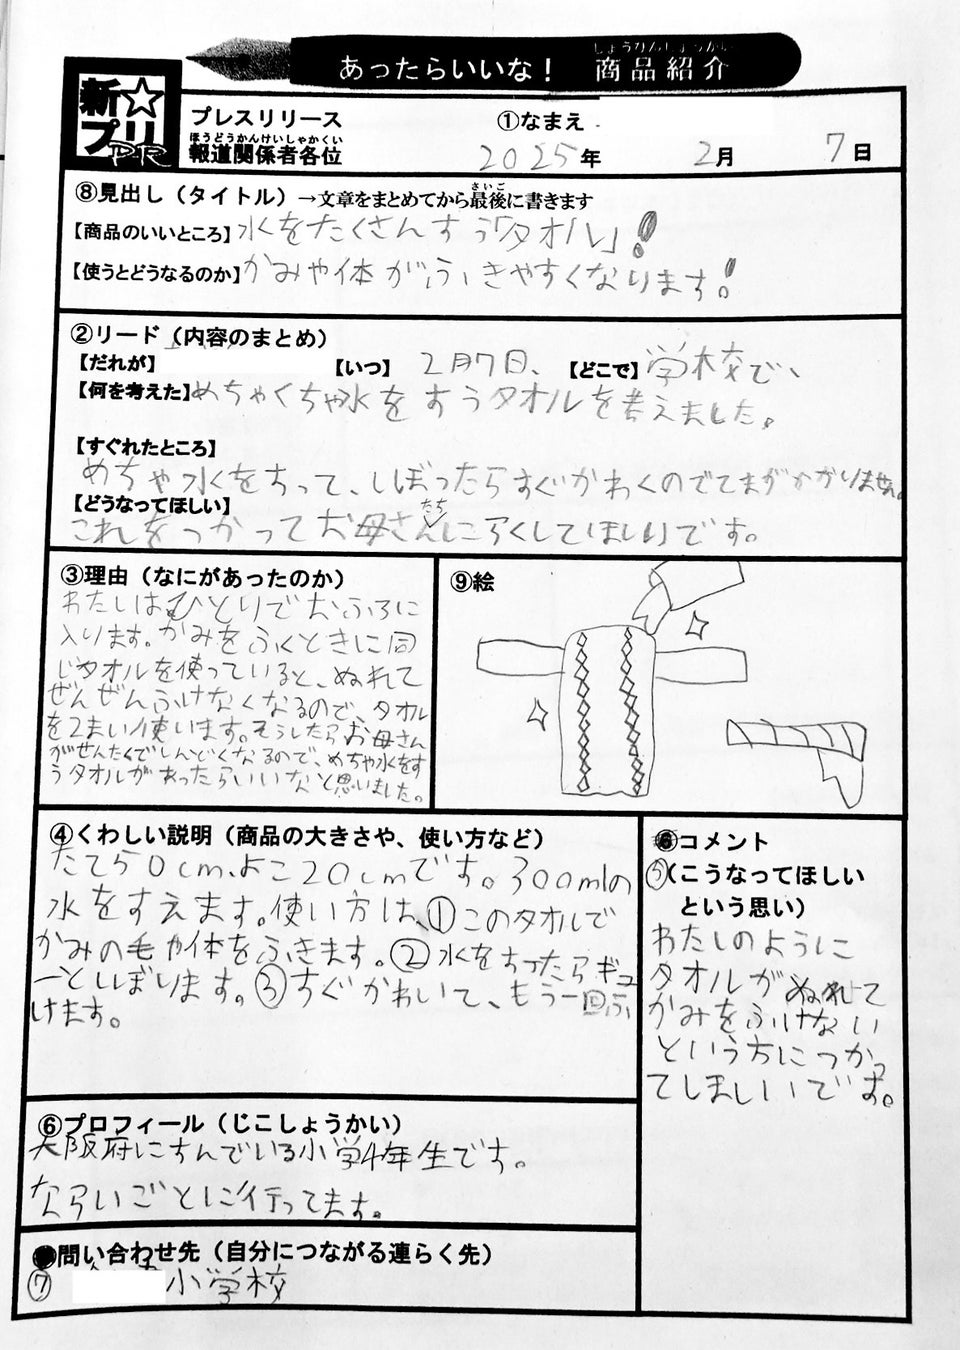 あったらいいな！ 商品紹介
しょうひんしょうかい
新☆
プリ
PR
プレスリリース
ほうどうかんけいしゃかくい
報道関係者各位
①なまえ
2025年 2月 7日
⑧見出し（タイトル）→文章をまとめてから最後に書きます
さいご
【商品のいいところ】水をたくさんすう「タオル」！
【使うとどうなるのか】かみや体がふきやすくなります！
②リード（内容のまとめ）
【だれが】 【いつ】 2月7日、 【どこで】学校で、
【何を考えた】めちゃくちゃ水をすうタオルを考えました。
【すぐれたところ】
めちゃ水をすって、しぼったらすぐかわくのでてまがかかりません。
【どうなってほしい】
これをつかってお母さんたちにらくしてほしいです。
③理由（なにがあったのか）
わたしはひとりでおふろに
入ります。かみをふくときに同
じタオルを使っていると、ぬれて
ぜんぜんふけなくなるので、タオル
を2まい使います。そうしたらお母さん
がせんたくでしんどくなるので、めちゃ水をす
うタオルがあったらいいなと思いました。
⑨絵
④くわしい説明（商品の大きさや、使い方など）
たて50cm、よこ20cmです。300mlの
水をすえます。使い方は、①このタオルで
かみの毛や体をふきます。②水をすったらギュ
ーとしぼります。③すぐかわいて、もう一回ふ
けます。
コメント
⑤（こうなってほしい
という思い）
わたしのように
タオルがぬれて
かみをふけない
という方につかっ
てほしいです。
⑥プロフィール（じこしょうかい）
大阪府にすんでいる小学4年生です。
ならいごとに行ってます。
問い合わせ先（自分につながる連らく先）
⑦ 小学校